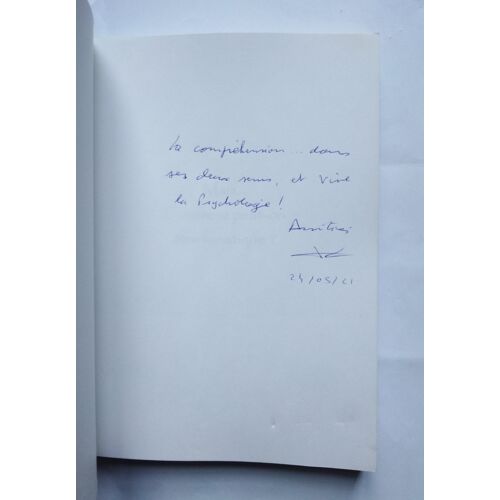 La compréhension... dans
ses deux sens, et Vive
la Psychologie !
Amitiés
24/05/21